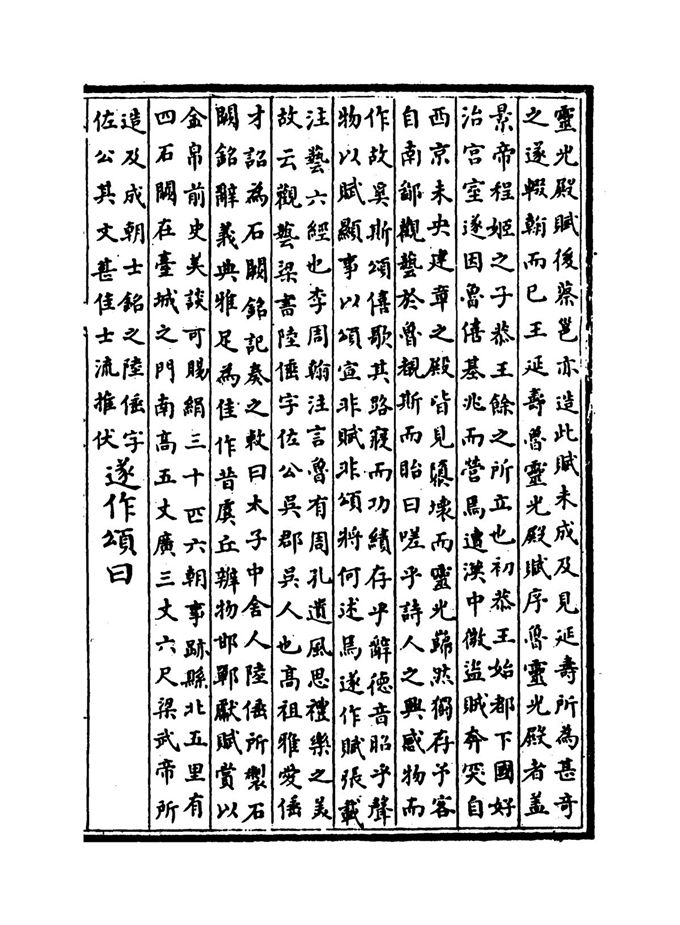 靈光殿賦後蔡邕亦造此賦未成及見延壽所為甚奇
之遂輟翰而已王延壽魯靈光殿賦序魯靈光殿者蓋
景帝程姬之子恭王餘之所立也初恭王始都下國好
治宫室遂因魯僖基兆而營焉遭漢中微盜賊奔突自
西京未央建章之殿皆見隳壞而靈光巋然獨存予客
自南鄙觀藝於魯覩斯而眙曰嗟乎詩人之興感物而
作故奚斯頌僖歌其路寢而功績存乎辭德音昭乎聲
物以賦顯事以頌宣非賦非頌將何述焉遂作賦張載
注藝六經也李周翰注言魯有周孔遺風思禮樂之美
故云觀藝梁書陸倕字佐公吳郡吳人也髙祖雅愛倕
才詔為石闕銘記奏之敕曰太子中舍人陸倕所製石
闕銘辭義典雅足為佳作昔虞丘辨物邯鄲獻賦賞以
金帛前史美談可賜絹三十匹六朝事跡縣北五里有
四石闕在臺城之門南髙五丈廣三丈六尺梁武帝所
造及成朝士銘之陸倕字
佐公其文甚佳士流推伏
遂作頌曰